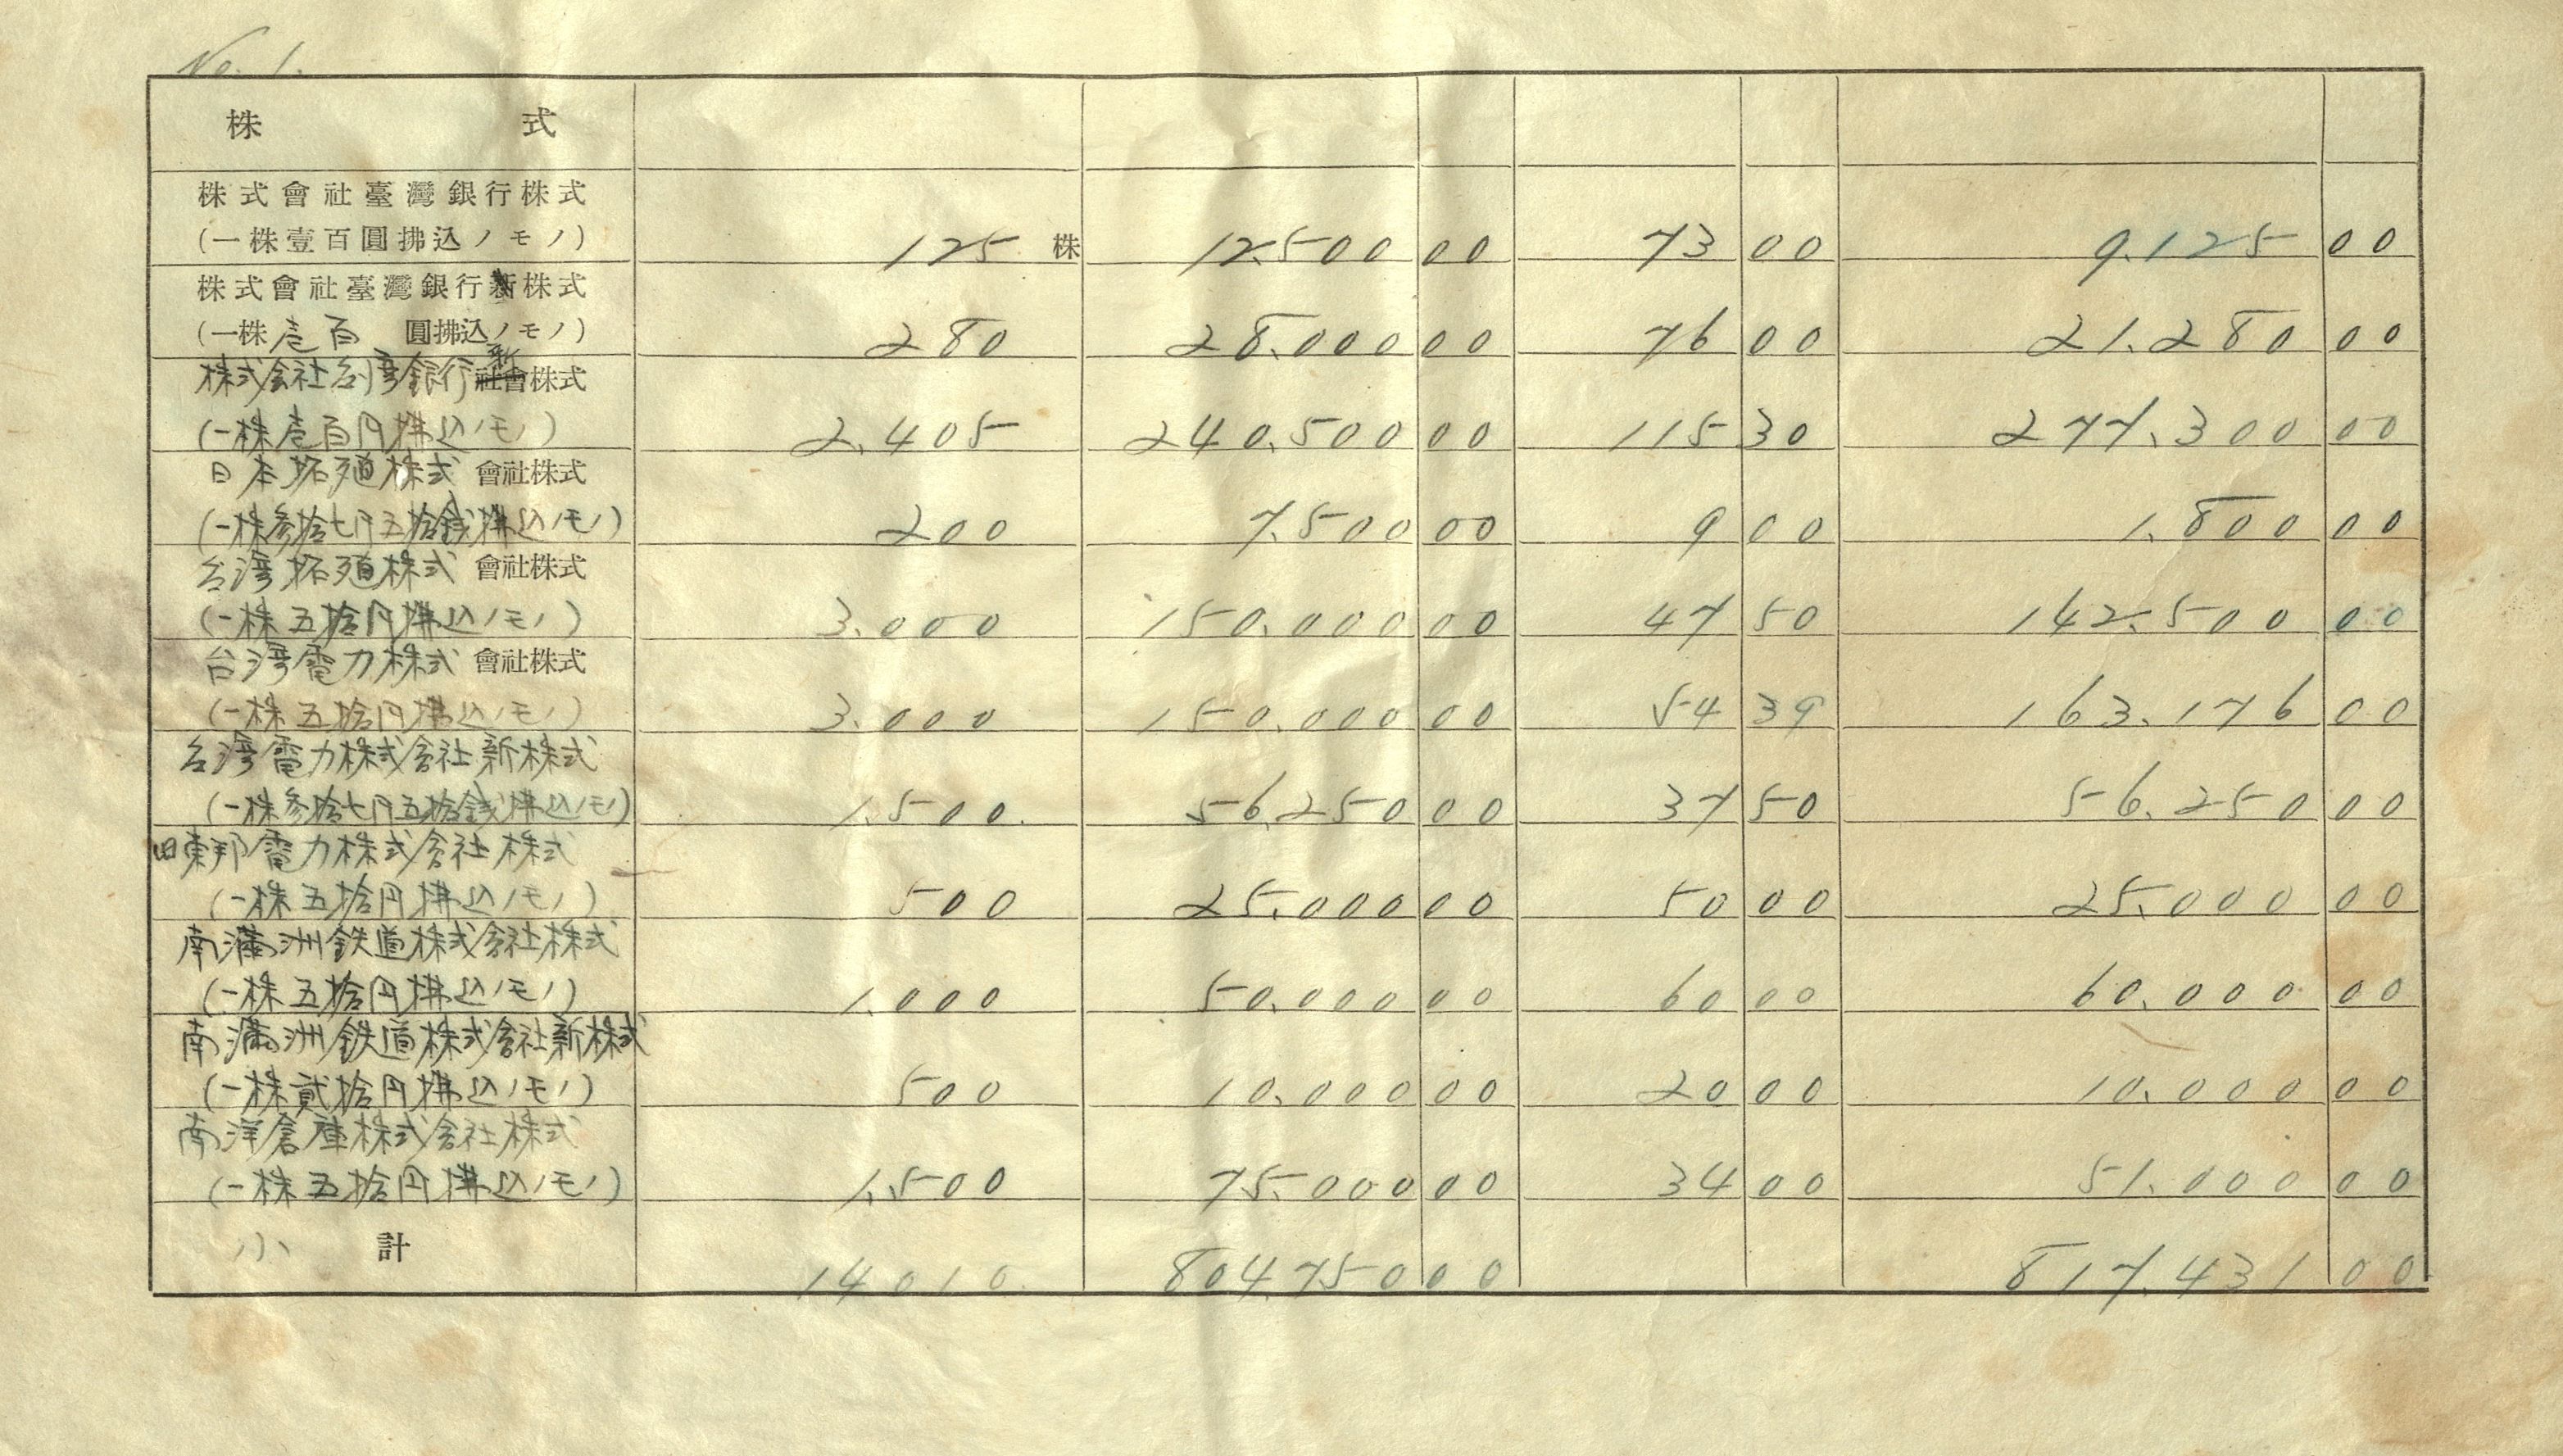 No. 1.
株 式
株式會社臺灣銀行株式
(一株壹百圓拂込ノモノ) 125 株 12.500 00 73 00 9.125 00
株式會社臺灣銀行新株式
(一株壱百 圓拂込ノモノ) 280 28.000 00 76 00 21.280 00
株式会社台湾銀行新社會株式
(一株壱百円拂込ノモノ) 2.405 240.500 00 115 30 277.300 00
日本拓殖株式會社株式
(一株参拾七円五拾銭拂込ノモノ) 200 7.500 00 9 00 1.800 00
台湾拓殖株式會社株式
(一株五拾円拂込ノモノ) 3.000 150.000 00 47 50 142.500 00
台湾電力株式會社株式
(一株五拾円拂込ノモノ) 3.000 150.000 00 54 39 163.176 00
台湾電力株式会社新株式
(一株参拾七円五拾銭拂込ノモノ) 1.500. 56.250 00 37 50 56.250 00
旧東邦電力株式会社株式
(一株五拾円拂込ノモノ) 500 25.000 00 50 00 25.000 00
南滿洲鉄道株式会社株式
(一株五拾円拂込ノモノ) 1.000 50.000 00 60 00 60.000 00
南滿洲鉄道株式会社新株式
(一株貮拾円拂込ノモノ) 500 10.000 00 20 00 10.000 00
南洋倉庫株式会社株式
(一株五拾円拂込ノモノ) 1.500 75.000 00 34 00 51.000 00
小 計 14010. 804.750 00 817.431 00